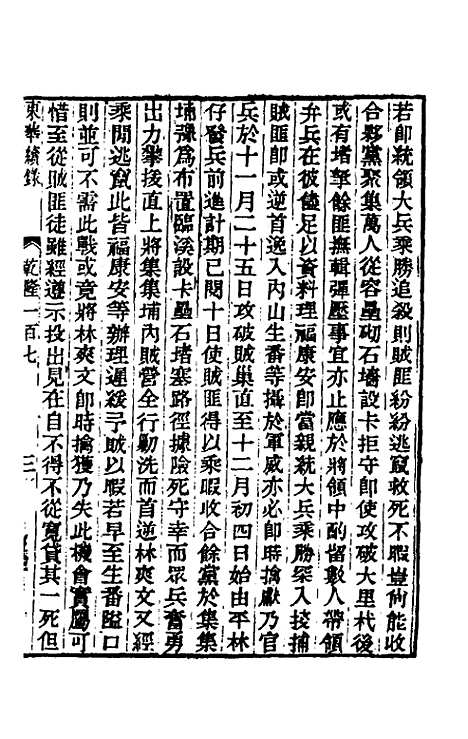 若卽統領大兵乘勝追殺則賊匪紛紛逃竄救死不暇豈尙能收
合夥黨聚集萬人從容壘砌石墻設卡拒守卽使攻破大里杙後
或有堵拏餘匪撫輯彈壓事宜亦止應於將領中酌留數人帶領
弁兵在彼儘足以資料理福康安卽當親統大兵乘勝深入搜捕
賊匪卽或逆首逸入內山生番等攝於軍威亦必卽時擒獻乃官
兵於十一月二十五日攻破賊巢直至十二月初四日始由平林
仔發兵前進計期已閱十日使賊匪得以乘暇收合餘黨於集集
埔豫爲布置臨溪設卡壘石堵塞路徑據險死守幸而眾兵奮勇
出力攀援直上將集集埔內賊營全行勦洗而首逆林爽文又經
乘閒逃竄此皆福康安等辦理遲緩予賊以暇若早至生番隘口
則並可不需此戰或竟將林爽文卽時擒獲乃失此機會實屬可
惜至從賊匪徒雖經遵示投出見在自不得不從寬貸其一死但
東華續錄 乾隆一百七 三